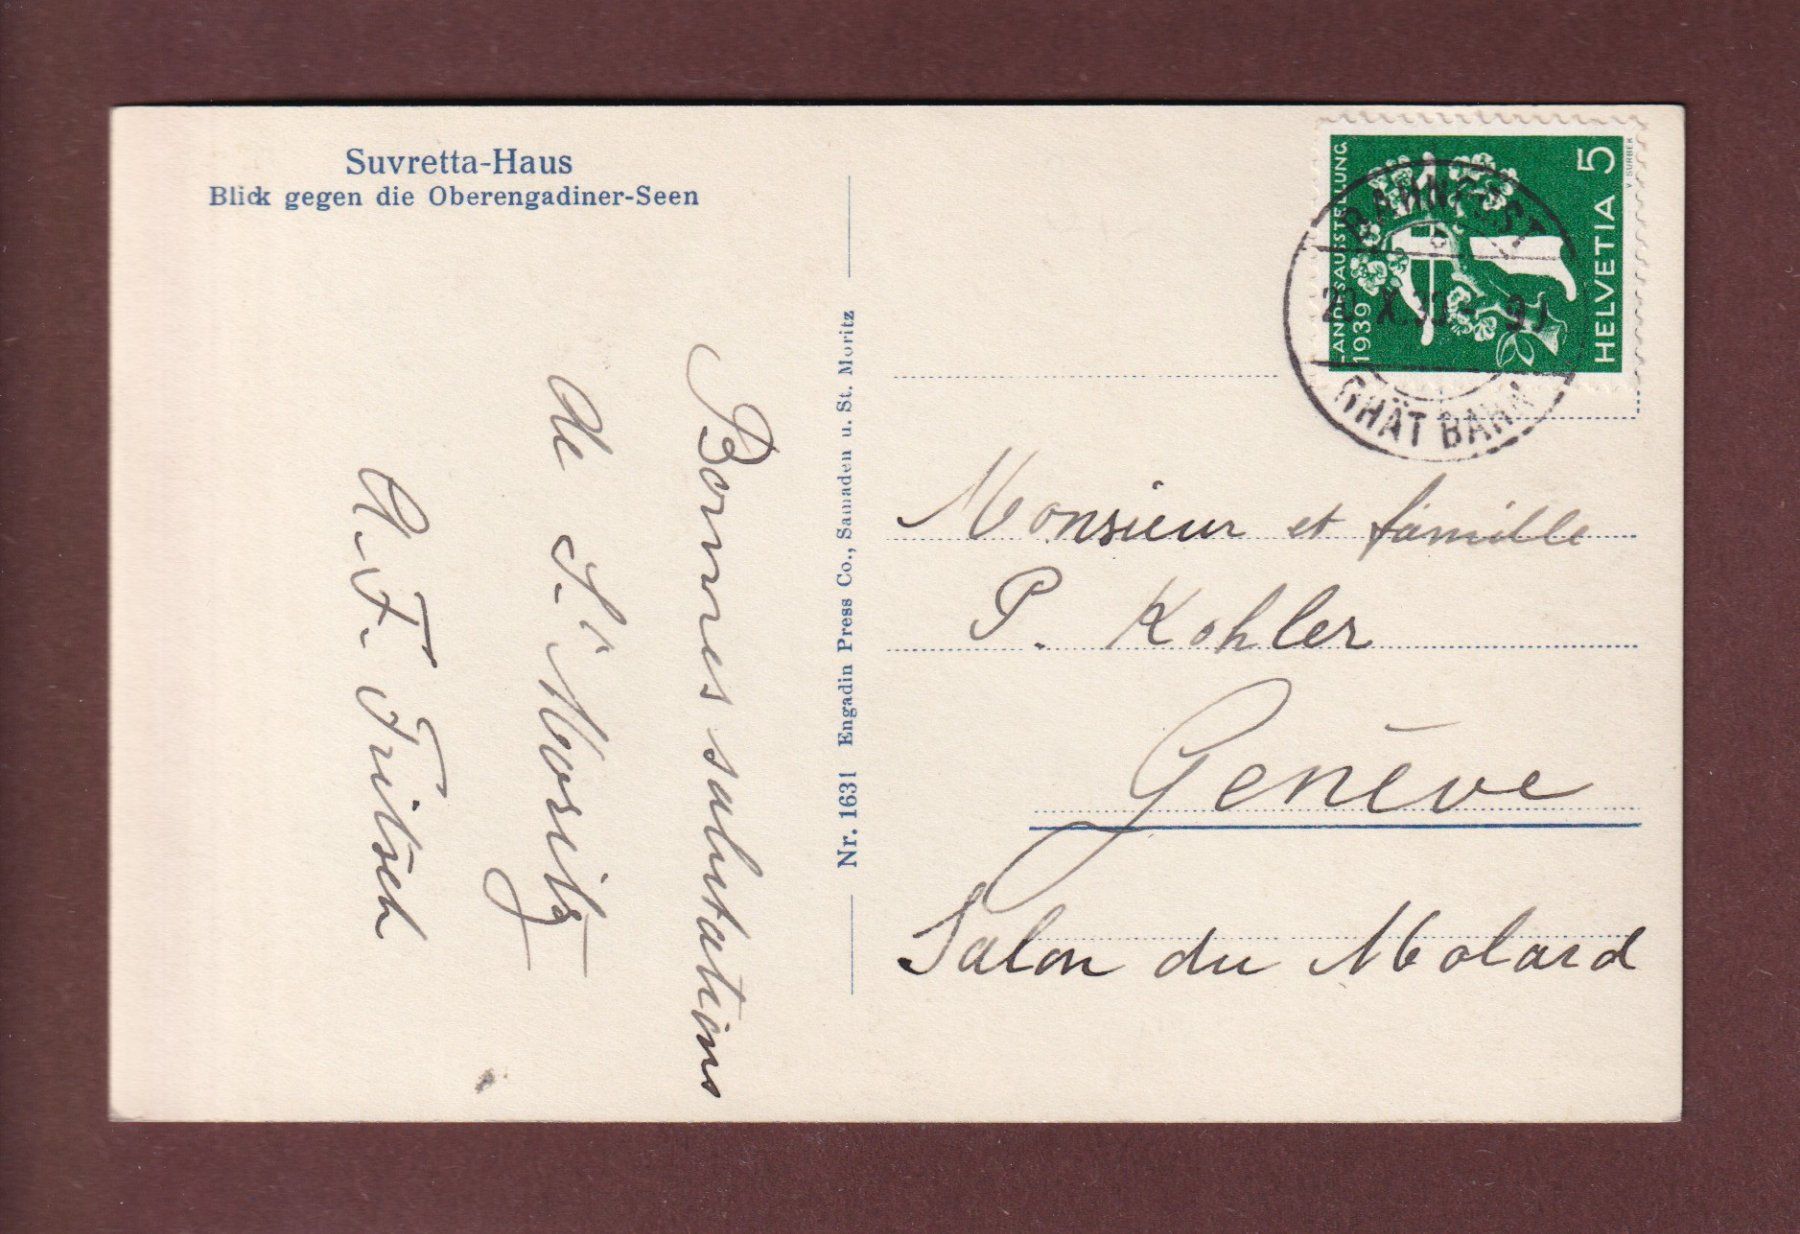 Suvretta-Haus
Blick gegen die Oberengadiner-Seen
Bonnes salutations
de St Moritz
A. F. Fritsch
Nr. 1631 Engadin Press Co., Samaden u. St. Moritz
LANDESAUSSTELLUNG
1939
HELVETIA 5
V. SURBEK
BAHNPOST
RHÄT BAHN
Monsieur et famille
P. Kohler
Genève
Salon du Molard